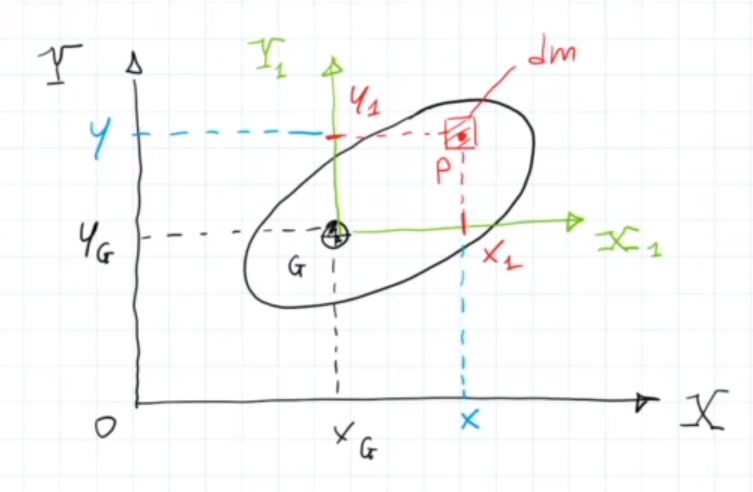 Y
Y₁
dm
y₁
y
P
y_G
G
X₁
x₁
O
x_G
x
X